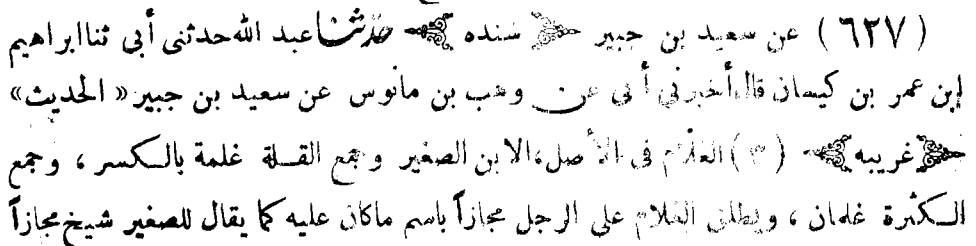 (٦٢٧) عن سعيد بن جبير ﴿ سنده ﴾ حدثنا عبد الله حدثنى أبى ثنا ابراهيم
ابن عمر بن كيسان قال أخبرنى أبى عن وهب بن مانوس عن سعيد بن جبير « الحديث»
﴿ غريبه ﴾ (٣) الغلام فى الأصل الابن الصغير وجمع القلة غلمة بالكسر ، وجمع
الكثرة غلمان ، ويطلق الغلام على الرجل مجازاً باسم ماكان عليه كما يقال للصغير شيخ مجازاً